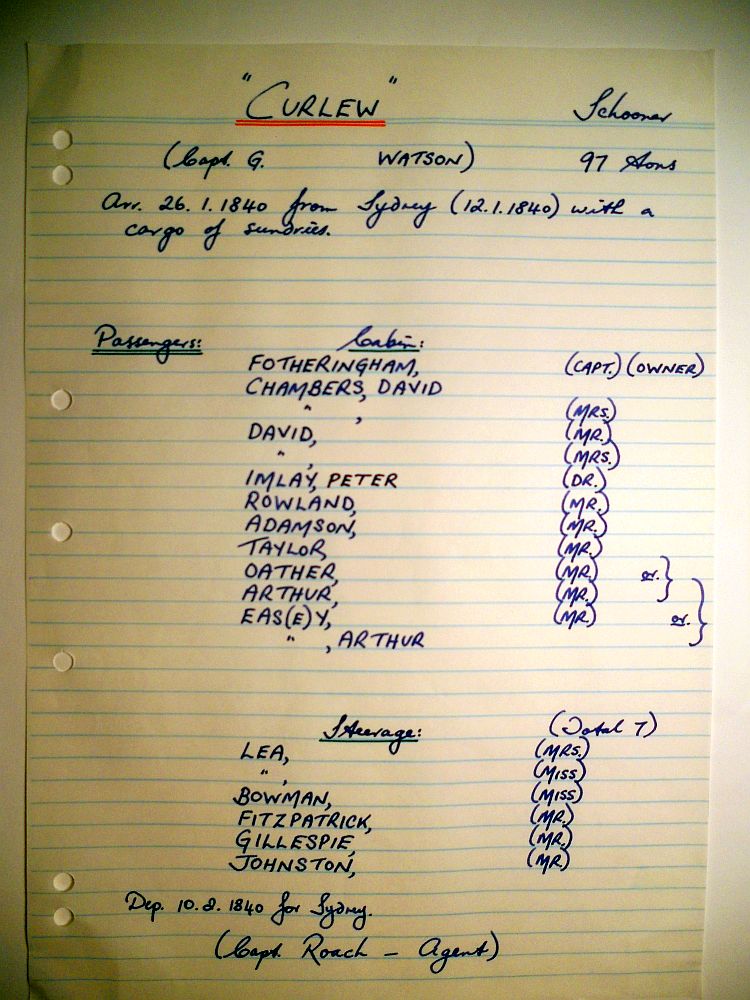 "CURLEW" Schooner
(Capt. G. WATSON) 97 tons
Arr. 26.1.1840 from Sydney (12.1.1840) with a
cargo of sundries.
Passengers: Cabin:
FOTHERINGHAM, (CAPT.) (OWNER)
CHAMBERS, DAVID
" , (MRS.)
DAVID, (MR.)
" , (MRS.)
IMLAY, PETER (DR.)
ROWLAND, (MR.)
ADAMSON, (MR.)
TAYLOR, (MR.)
OATHER, (MR.) or. }
ARTHUR, (MR.)
EAS(E)Y, (MR.) or. }
" , ARTHUR
Steerage: (Total 7)
LEA, (MRS.)
" , (MISS)
BOWMAN, (MISS)
FITZPATRICK, (MR.)
GILLESPIE, (MR.)
JOHNSTON, (MR)
Dep. 10.2.1840 for Sydney.
(Capt. Roach - Agent)